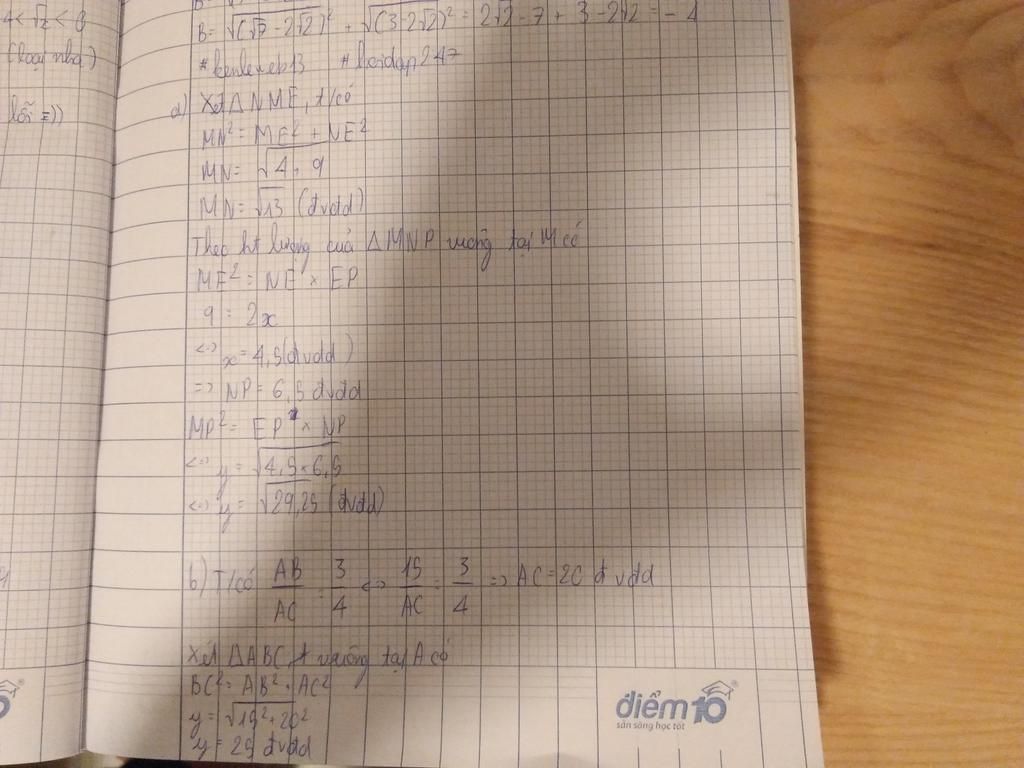 4 < √2 < 0
(loại nha)
lỗi =))
B = √(√7 - 2√2)² + √(3 - 2√2)² = 2√2 - 7 + 3 - 2√2 = - 4
#kenlexeb13 #hoidap247
a) Xét △ NME, t/có
MN² = ME² + NE²
MN = √4 + 9
MN = √13 (đvđd)
Theo ht lượng của △MNP vuông tại M có
ME² = NE × EP
9 = 2x
<=> x = 4,5 (đvđd)
=> NP = 6,5 đvđd
MP² = EP × NP
<=> y = √4,5 × 6,5
<=> y = √29,25 (đvđd)
b) T/có AB/AC = 3/4 <=> 15/AC = 3/4 => AC = 20 đvđd
Xét △ABC, t vuông tại A có
BC² = AB² + AC²
y = √15² + 20²
y = 25 đvđd
điểm 10
sẵn sàng học tốt